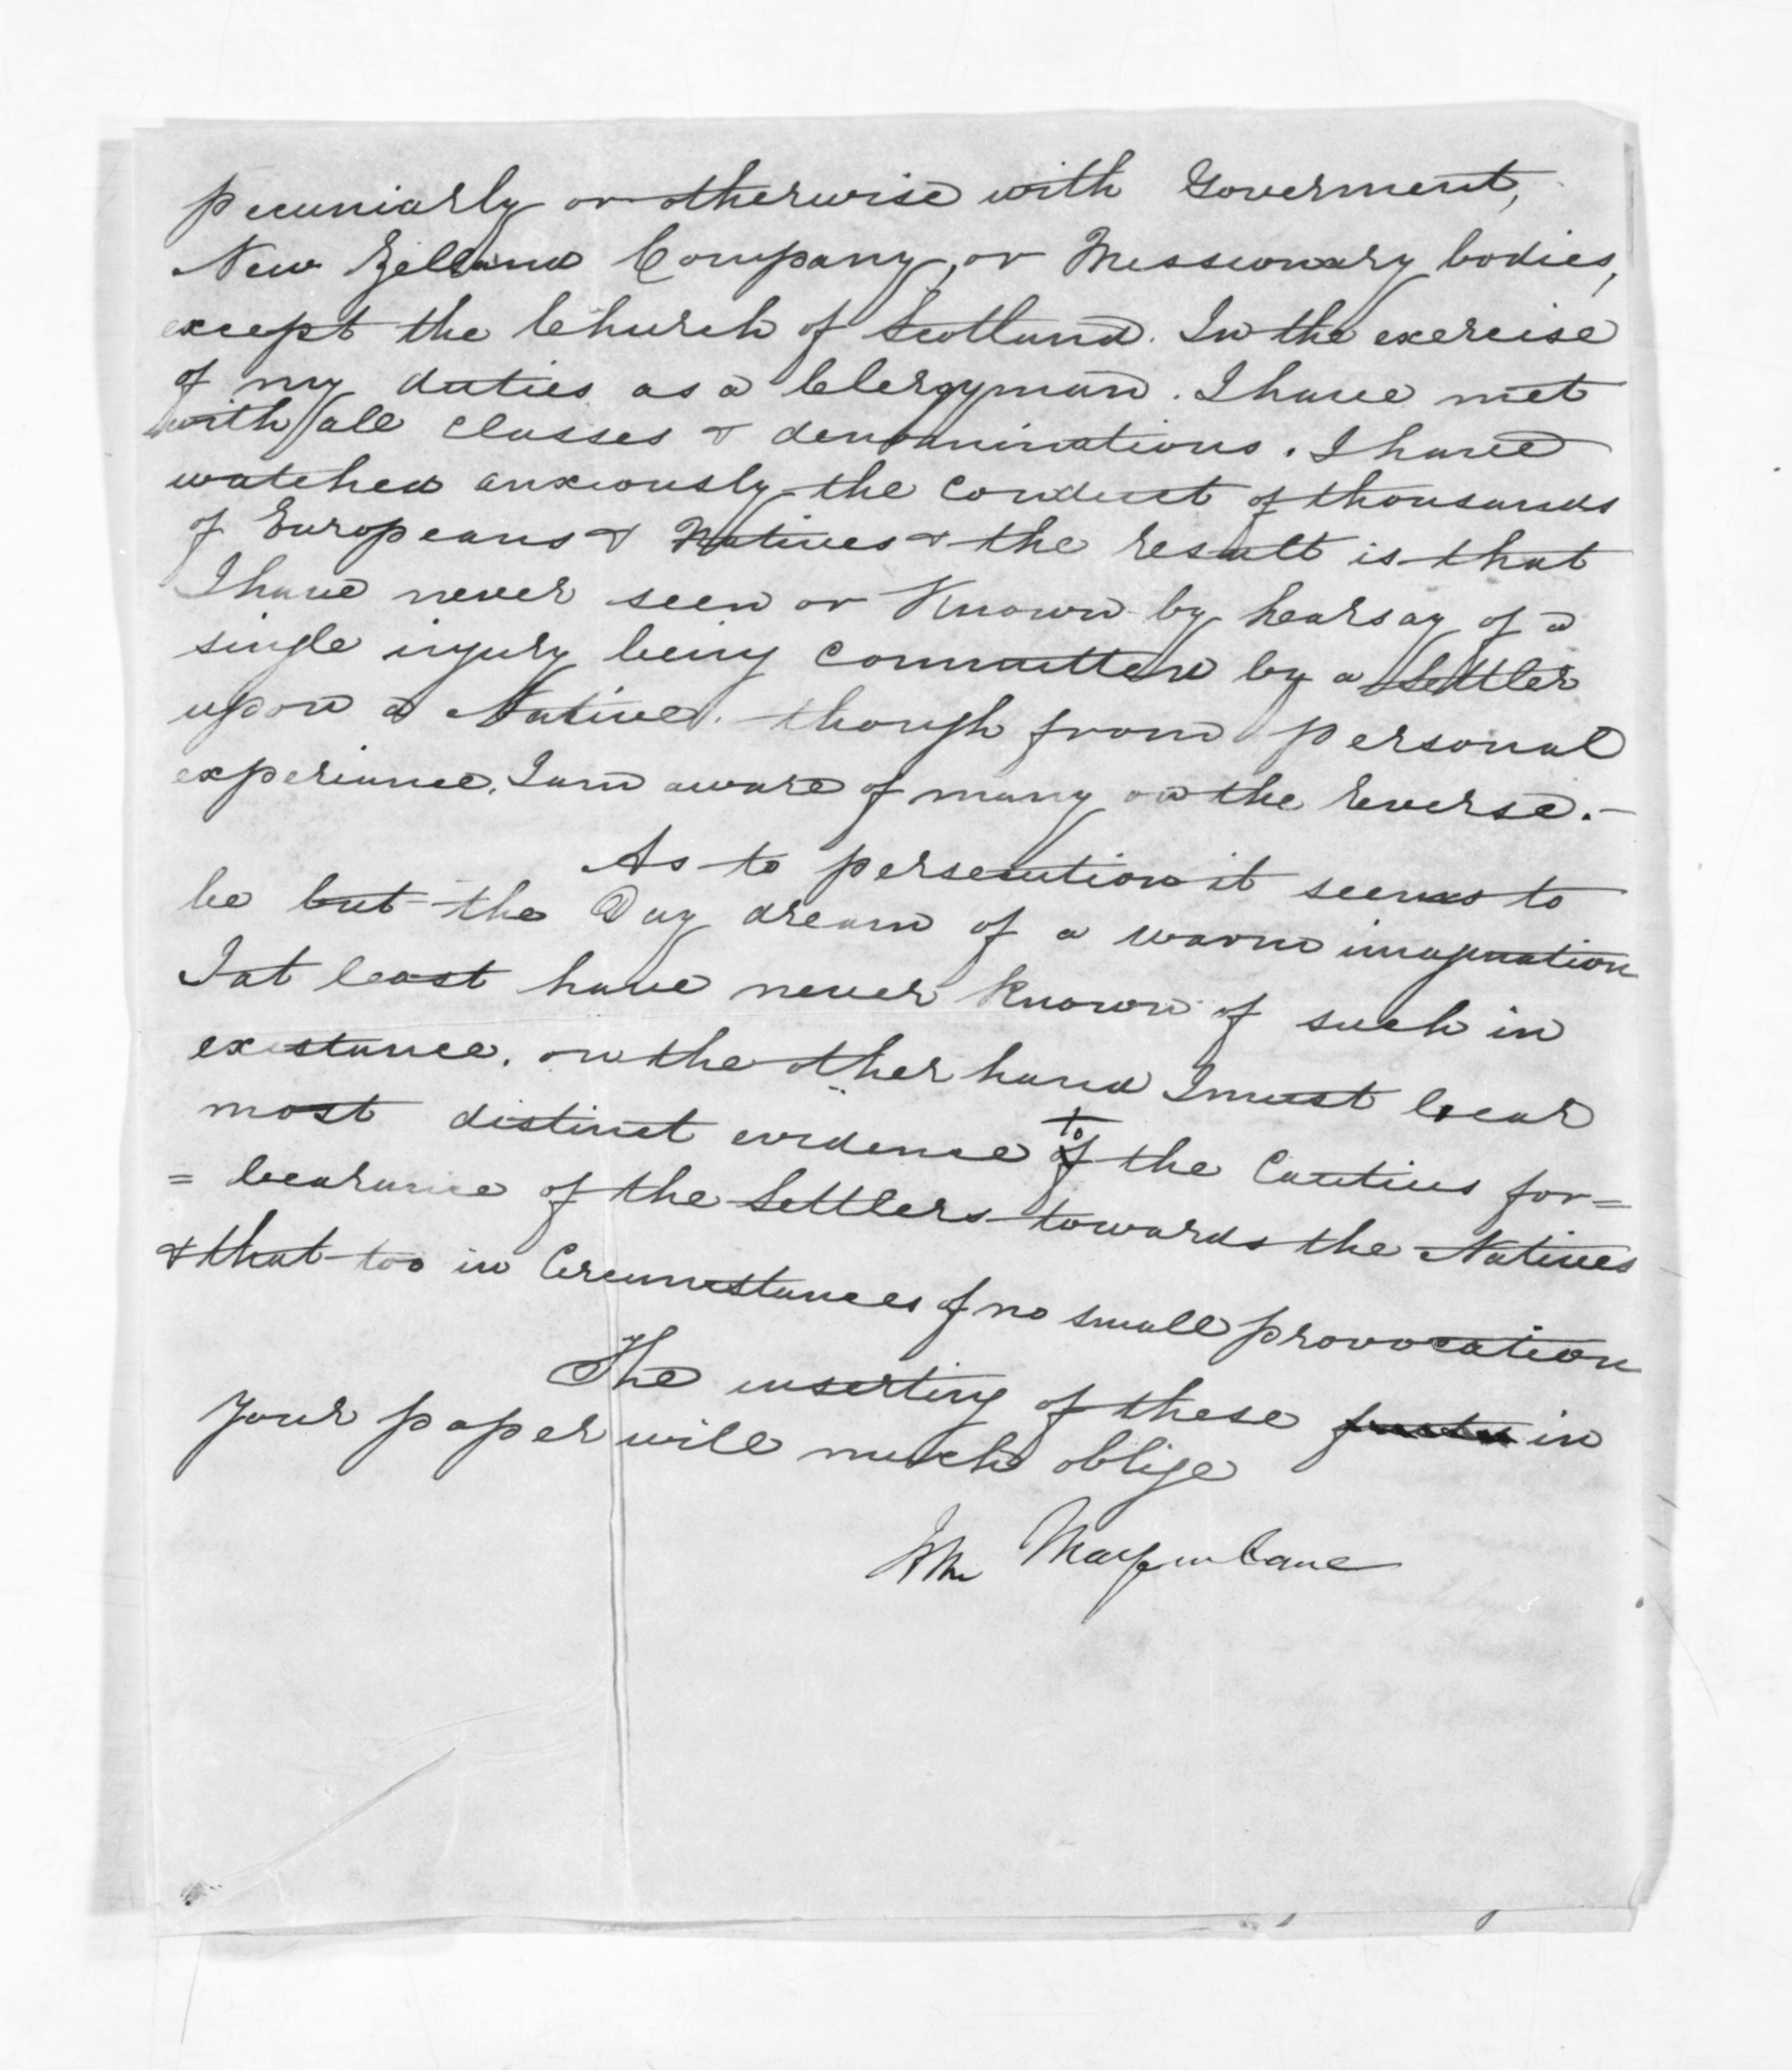 pecuniarly or otherwise with Goverment,
New Zelland Company, or Missionary bodies,
except the Church of Scotland. In the exercise
of my duties as a Clergyman. I have met
with all classes & denominations. I have
watched anxiously the conduct of thousands
of Europeans & Natives & the result is that
I have never seen or Known by hearsay of a
single injury being committed by a Settler
upon a Native. though from personal
experiance. I am aware of many on the reverse.-
As to persecution it seems to
be but the Day dream of a warm imagination
I at least have never known of such in
existance. on the other hand I must bear
most distinct evidence to the Cautius for=
=bearance of the Settlers towards the Natives
& that too in Circumstances of no small provocation
The inserting of these facts in
Your paper will much oblige
Jhn Macfarlane